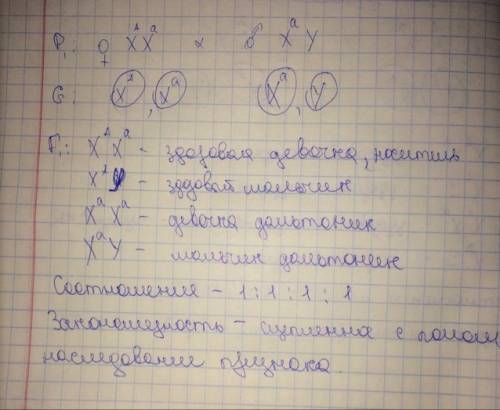 P₁: ♀ XᴬXᵃ × ♂ XᵃY
G: Xᴬ, Xᵃ Xᵃ, Y
F₁: XᴬXᵃ - здоровая девочка, носитель
XᴬY - здовый мальчик
XᵃXᵃ - девочка дальтоник
XᵃY - мальчик дальтоник
Соотношение - 1:1:1:1
Закономерность - сцепленна с полом
наследование признака.